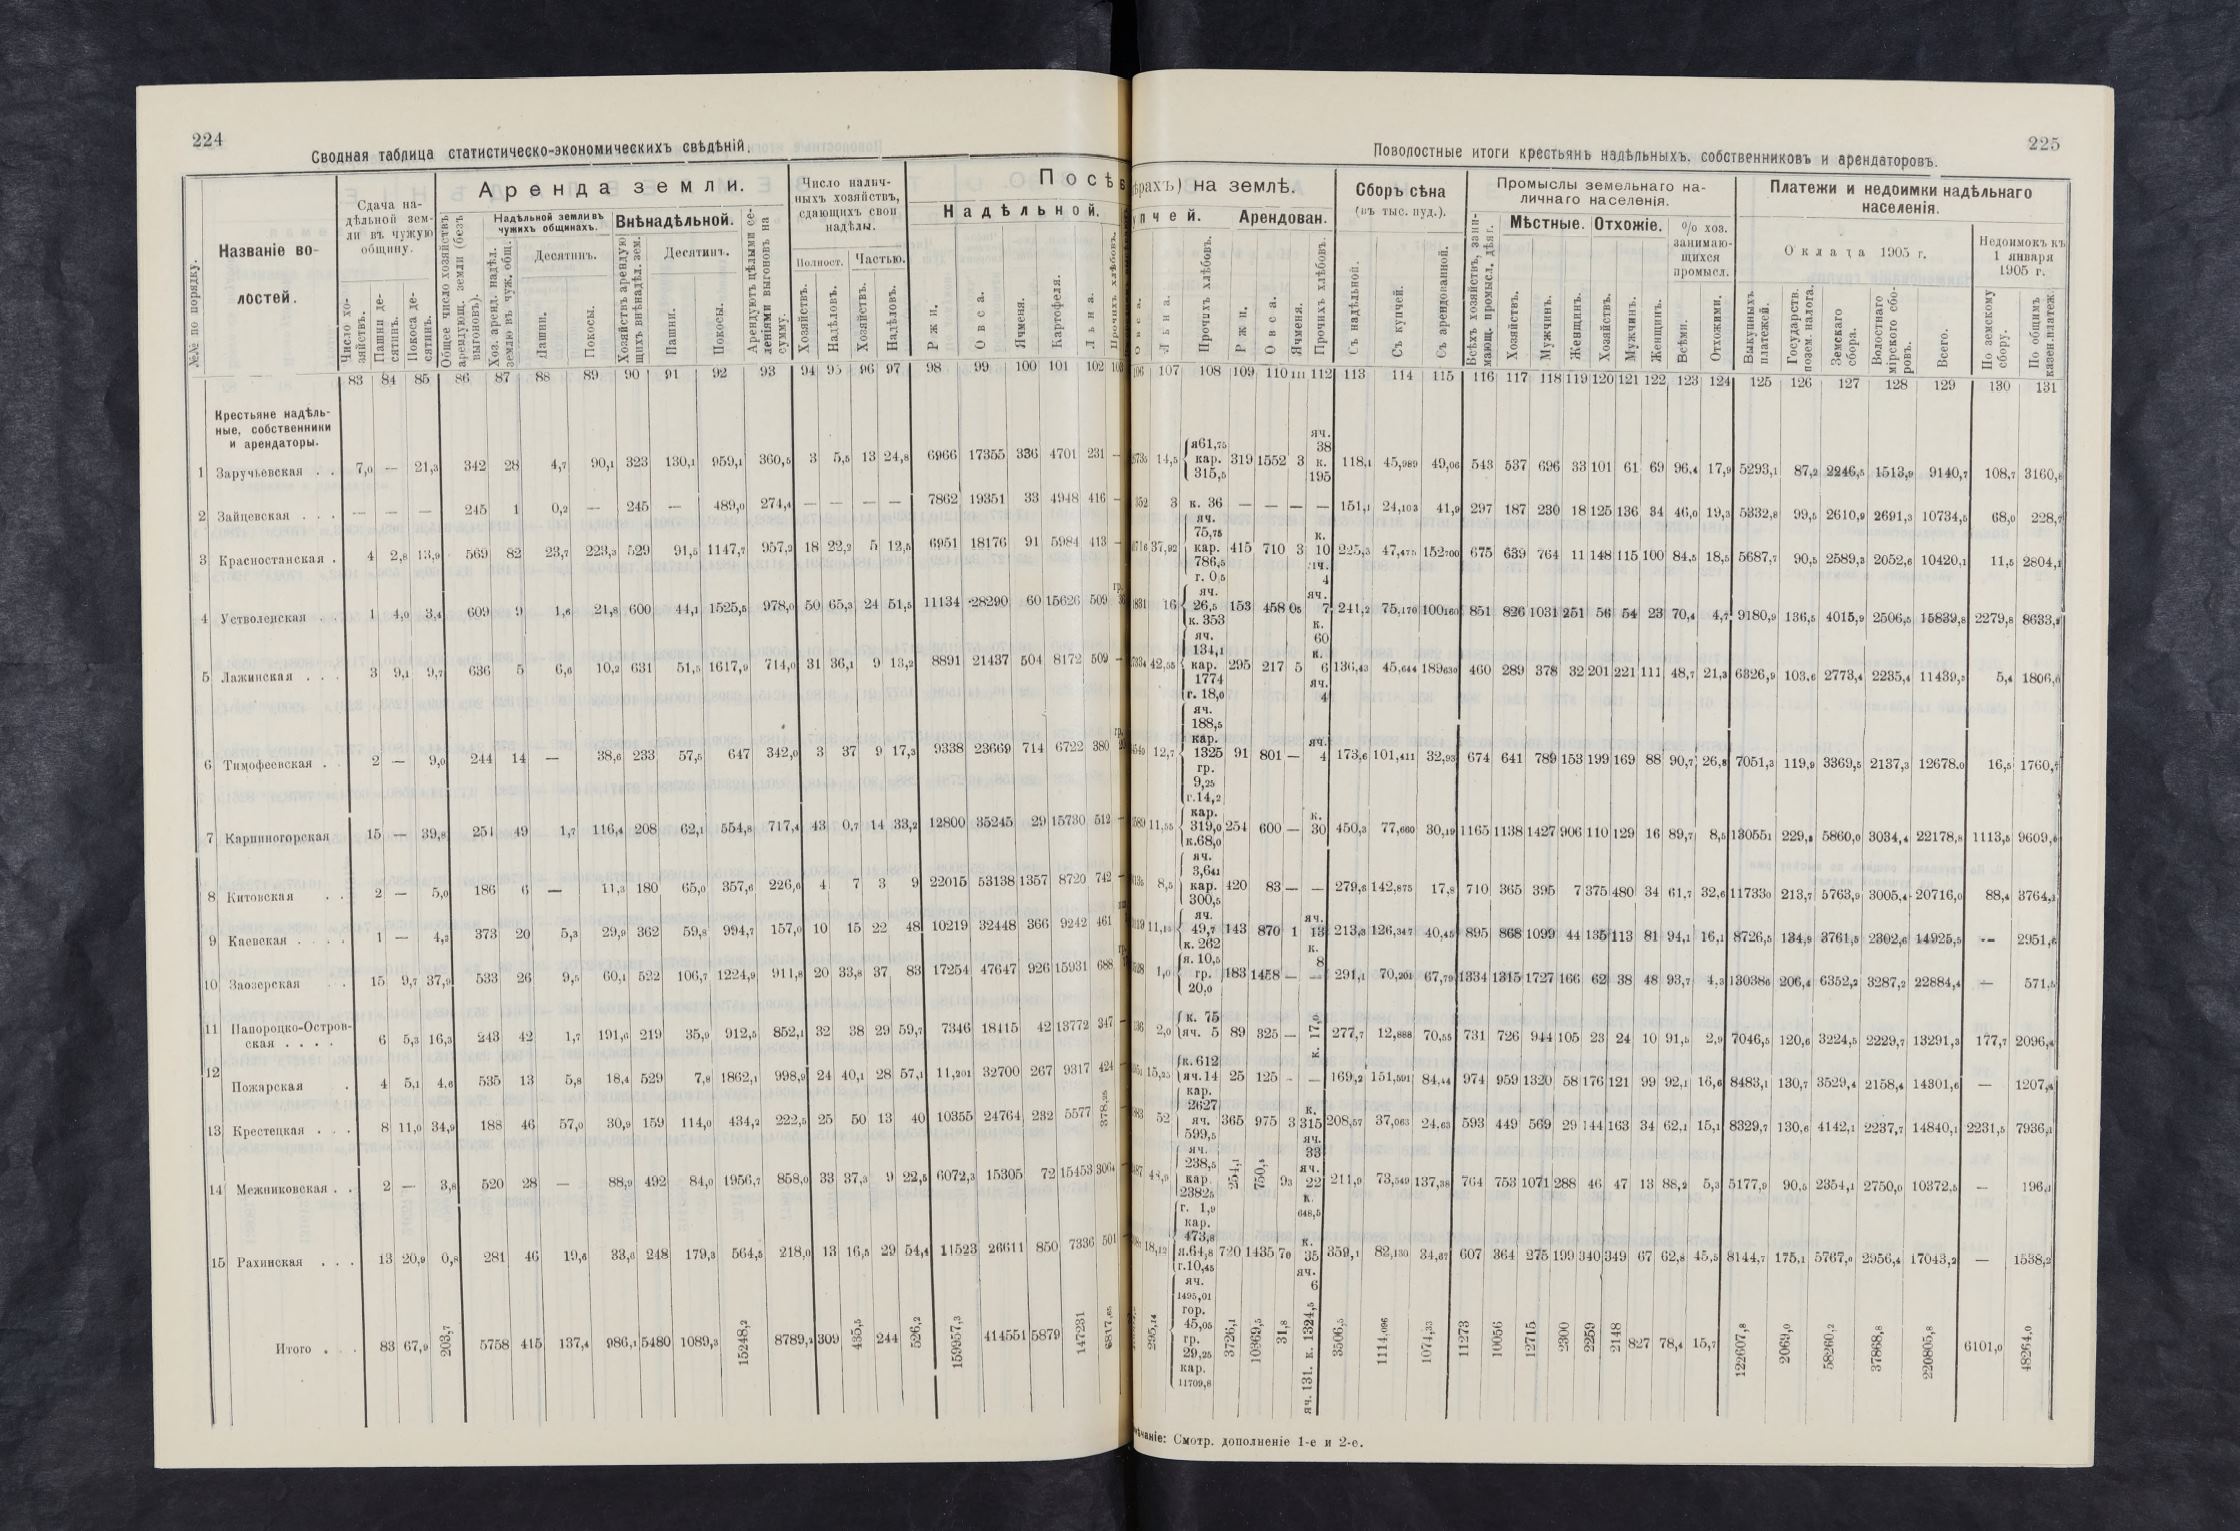 224
Сводная таблица статистическо-экономическихъ свѣдѣній.
№№ по порядку.
Названіе во-
лостей.
Сдача на-
дѣльной зем-
ли въ чужую
общину.
Число хо-
зяйствъ.
Пашни де-
сятинъ.
Покоса де-
сятинъ.
Аренда земли.
Общее число хозяйствъ
арендующ. земли (безъ
выгоновъ).
Надѣльной земли въ
чужихъ общинахъ.
Хоз. аренд. надѣл.
землю въ чуж. общ.
Десятинъ.
Пашни.
Покосы.
Внѣнадѣльной.
Хозяйствъ арендую
щихъ внѣнадѣл. зем.
Десятинъ.
Пашни.
Покосы.
Арендуютъ цѣлыми се-
леніями выгоновъ на
сумму.
Число налич-
ныхъ хозяйствъ,
сдающихъ свои
надѣлы.
Полност. Частью.
Хозяйствъ.
Надѣловъ.
Хозяйствъ.
Надѣловъ.
Посѣв
Надѣльной.
Ржи.
Овса.
Ячменя.
Картофеля.
Льна.
Прочихъ хлѣбовъ.
83 84 85 86 87 88 89 90 91 92 93 94 95 96 97 98 99 100 101 102 103
Крестьяне надѣль-
ные, собственники
и арендаторы.
1 Заручьевская . . 7,0 — 21,3 342 28 4,7 90,1 323 130,1 959,1 360,5 3 5,5 13 24,8 6966 17355 336 4701 231 —
2 Зайцевская . . . — — — 245 1 0,2 — 245 — 489,0 274,4 — — — — 7862 19351 33 4948 416 —
3 Красностанская . 4 2,8 13,9 569 82 23,7 223,3 529 91,5 1147,7 957,2 18 22,2 5 12,5 6951 18176 91 5984 413 —
4 Устволенская . . 1 4,0 3,4 609 9 1,6 21,8 600 44,1 1525,5 978,0 50 65,3 24 51,5 11134 28290 60 15626 509
5 Лажинская . . . 3 9,1 9,7 636 5 6,6 10,2 631 51,5 1617,9 714,0 31 36,1 9 13,2 8891 21437 504 8172 509 —
6 Тимофеевская . . 2 — 9,0 244 14 — 38,6 233 57,5 647 342,0 3 37 9 17,3 9338 23669 714 6722 380
7 Карпиногорская 15 — 39,8 251 49 1,7 116,4 208 62,1 554,8 717,4 43 0,7 14 33,2 12800 35245 29 15730 512 —
8 Китовская . . 2 — 5,0 186 6 — 11,3 180 65,0 357,6 226,6 4 7 3 9 22015 53138 1357 8720 742 —
9 Каевская . . . . 1 — 4,2 373 20 5,3 29,9 362 59,8 994,7 157,0 10 15 22 48 10219 32448 366 9242 461
10 Заозерская . . 15 9,7 37,9 533 26 9,5 60,1 522 106,7 1224,9 911,8 20 33,8 37 83 17254 47647 926 15931 688
11 Папороцко-Остров-
ская . . . . 6 5,3 16,3 243 42 1,7 191,6 219 35,9 912,5 852,1 32 38 29 59,7 7346 18415 42 13772 347 —
12 Пожарская . 4 5,1 4,6 535 13 5,8 18,4 529 7,8 1862,1 998,9 24 40,1 28 57,1 11,201 32700 267 9317 424 —
13 Крестецкая . . . 8 11,0 34,9 188 46 57,0 30,9 159 114,0 434,2 222,5 25 50 13 40 10355 24764 232 5577 378,25
14 Межниковская . . 2 — 3,8 520 28 — 88,9 492 84,0 1956,7 858,0 33 37,3 9 22,5 6072,3 15305 72 15453 3064
15 Рахинская . . . 13 20,9 0,8 281 46 19,6 33,6 248 179,3 564,5 218,0 13 16,5 29 54,4 11523 26611 850 7336 501
Итого . . . 83 67,9 203,7 5758 415 137,4 986,1 5480 1089,3 15248,2 8789,2 309 435,5 244 526,2 159957,3 414551 5879 147231 6817,65
225
Поволостные итоги крестьянъ надѣльныхъ, собственниковъ и арендаторовъ.
ѣрахъ) на землѣ.
упчей. Арендован.
Овса.
Льна.
Прочихъ хлѣбовъ.
Ржи.
Овса.
Ячменя.
Прочихъ хлѣбовъ.
Сборъ сѣна
(въ тыс. пуд.).
Съ надѣльной.
Съ купчей.
Съ арендованной.
Промыслы земельнаго на-
личнаго населенія.
Всѣхъ хозяйствъ, зани-
мающ. промысл. дѣяг.
Мѣстные. Отхожіе.
Хозяйствъ.
Мужчинъ.
Женщинъ.
Хозяйствъ.
Мужчинъ.
Женщинъ.
% хоз.
занимаю-
щихся
промысл.
Всѣми.
Отхожими.
Платежи и недоимки надѣльнаго
населенія.
Оклада 1905 г.
Выкупныхъ
платежей.
Государств.
позем. налога.
Земскаго
сбора.
Волостнаго
мірского сбо-
ровъ.
Всего.
Недоимокъ къ
1 января
1905 г.
По земскому
сбору.
По общимъ
казен.платеж.
106 107 108 109 110 111 112 113 114 115 116 117 118 119 120 121 122 123 124 125 126 127 128 129 130 131
14,5 я61,75 кар. 315,5 319 1552 3 яч. 38 к. 195 118,1 45,989 49,06 543 537 696 33 101 61 69 96,4 17,9 5293,1 87,2 2246,5 1513,9 9140,7 108,7 3160,8
352 3 к. 36 — — — — 151,1 24,103 41,9 297 187 230 18 125 136 34 46,0 19,3 5332,8 99,5 2610,9 2691,3 10734,5 68,0 228,7
37,92 яч. 75,75 кар. 786,5 г. 0,5 415 710 3 к. 10 яч. 4 225,3 47,475 152700 675 639 764 11 148 115 100 84,5 18,5 5687,7 90,5 2589,3 2052,6 10420,1 11,5 2804,1
16 яч. 26,5 к. 353 153 458 05 яч. 7 к. 60 241,2 75,170 100160 851 826 1031 251 56 54 23 70,4 4,7 9180,9 136,5 4015,9 2506,5 15839,8 2279,8 8633,8
42,55 яч. 134,1 кар. 1774 г. 18,0 295 217 5 к. 6 яч. 4 136,43 45,644 189630 460 289 378 32 201 221 111 48,7 21,3 6326,9 103,6 2773,4 2235,4 11439,3 5,4 1806,6
12,7 яч. 188,5 кар. 1325 гр. 9,25 г.14,2 91 801 — яч. 4 173,6 101,411 32,93 674 641 789 153 199 169 88 90,7 26,8 7051,3 119,9 3369,5 2137,3 12678,0 16,5 1760,7
11,55 кар. 319,0 к.68,0 254 600 — к. 30 450,3 77,660 30,19 1165 1138 1427 906 110 129 16 89,7 8,5 13055,1 229,8 5860,0 3034,4 22178,8 1113,5 9609,6
8,5 яч. 3,641 кар. 300,5 420 83 — — 279,6 142,875 17,8 710 365 395 7 375 480 34 61,7 32,6 11733,0 213,7 5763,9 3005,4 20716,0 88,4 3764,2
11,15 яч. 49,7 к. 262 143 870 1 яч. 13 к. 8 213,3 126,347 40,45 895 868 1099 44 135 113 81 94,1 16,1 8726,5 134,9 3761,5 2302,6 14925,5 -- 2951,6
1,0 я. 10,5 гр. 20,0 183 1458 — — 291,1 70,201 67,79 1334 1315 1727 166 62 38 48 93,7 4,3 13038,6 206,4 6352,2 3287,2 22884,4 — 571,5
2,0 к. 75 яч. 5 89 325 — к. 17,0 277,7 12,888 70,55 731 726 944 105 23 24 10 91,5 2,9 7046,5 120,6 3224,5 2229,7 13291,3 177,7 2096,4
15,25 к.612 яч.14 25 125 - — 169,2 151,591 84,44 974 959 1320 58 176 121 99 92,1 16,6 8483,1 130,7 3529,4 2158,4 14301,6 — 1207,4
52 кар. 2627 яч. 599,5 365 975 3 к. 315 яч. 33 208,57 37,063 24,63 593 449 569 29 144 163 34 62,1 15,1 8329,7 130,6 4142,1 2237,7 14840,1 2231,5 7936,1
яч. 238,5 кар. 23825 г. 1,9 254,1 750,5 93 яч. 22 к. 648,5 211,9 73,549 137,38 764 753 1071 288 46 47 13 88,2 5,3 5177,9 90,5 2354,1 2750,0 10372,5 — 196,1
18,12 кар. 473,8 я.64,8 г.10,45 720 1435 70 к. 35 яч. 6 359,1 82,130 34,67 607 364 275 199 340 349 67 62,8 45,5 8144,7 175,1 5767,0 2956,4 17043,2 — 1538,2
295,14 яч. 1495,01 гор. 45,05 гр. 29,25 кар. 11709,8 3726,1 10369,5 31,8 яч. 131. к. 1324,5 3506,5 1114,096 1074,33 11273 10056 12715 2300 2259 2148 827 78,4 15,7 122607,8 2069,0 58260,2 37868,8 220805,8 6101,0 48264,0
Смотр. дополненіе 1-е и 2-е.